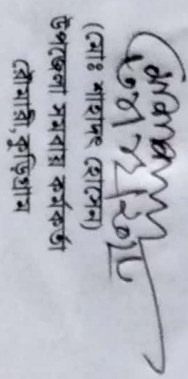 (মোঃ শাহাদৎ হোসেন)
উপজেলা সমবায় কর্মকর্তা
রৌমারি, কুড়িগ্রাম